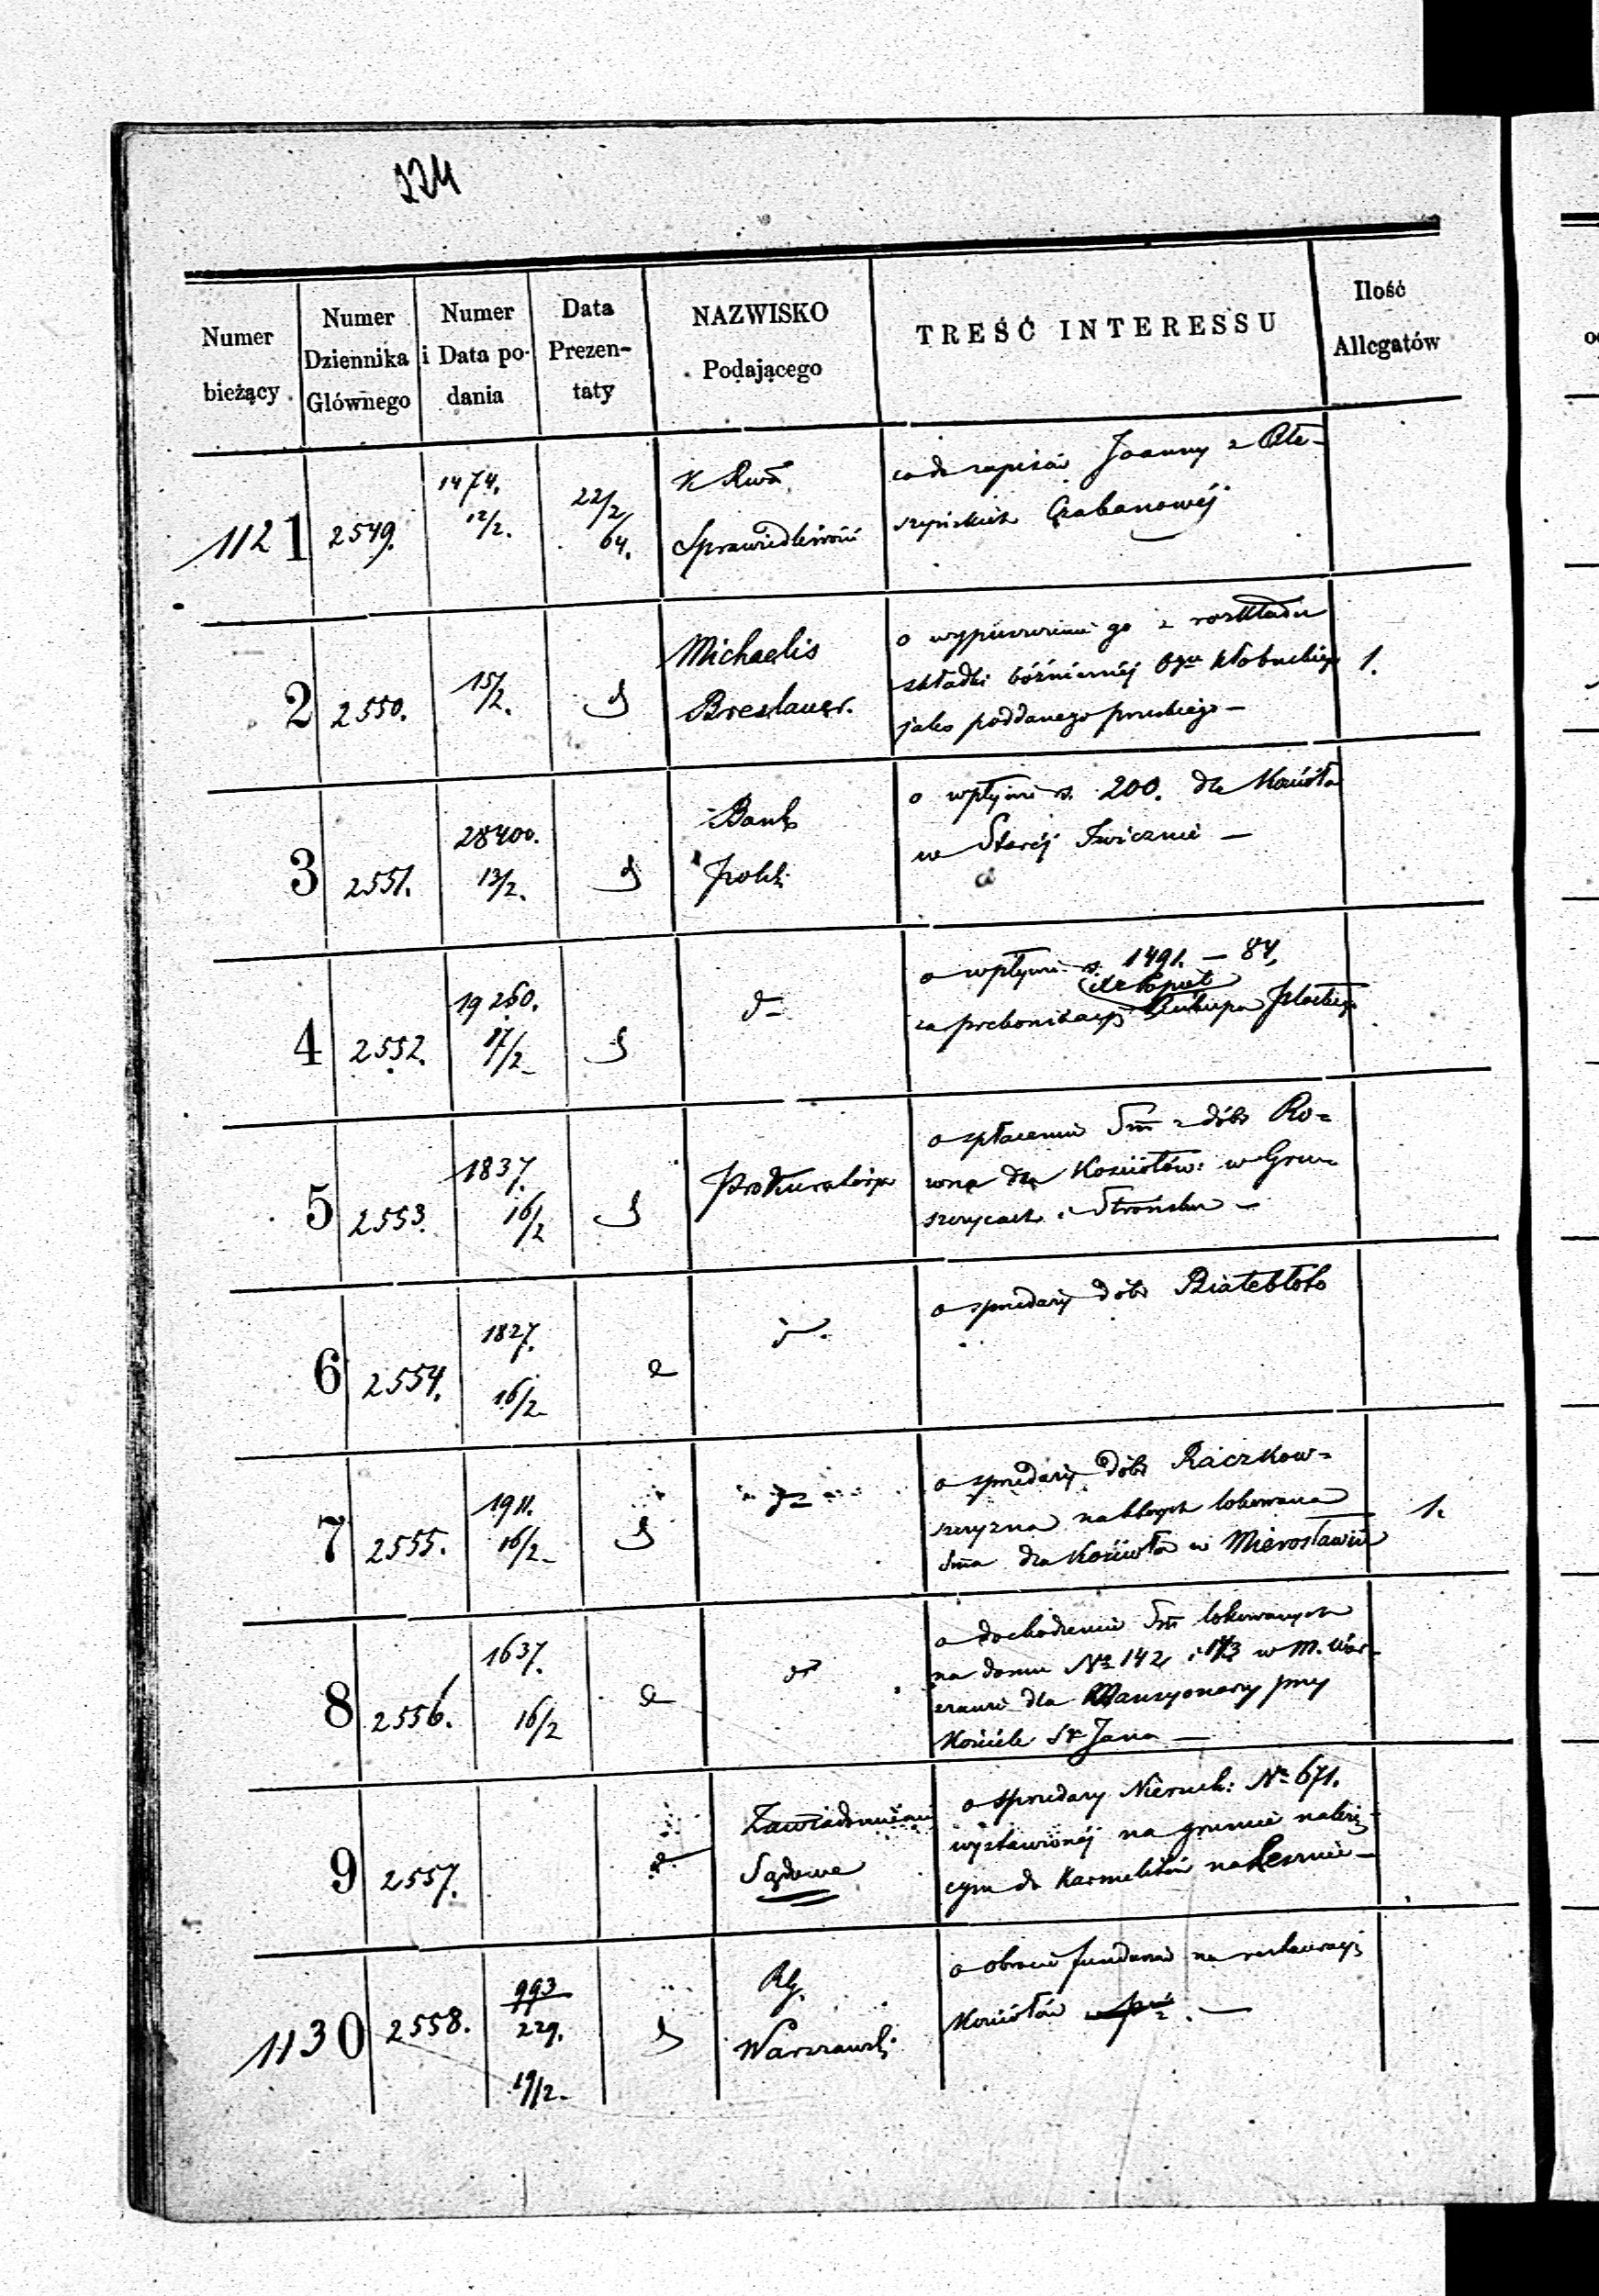 224
Numer bieżący
Numer Dziennika Głównego
Numer i Data podania
Data Prezentaty
NAZWISKO Podającego
TREŚĆ INTERESSU
Ilość Allegatów
1121 2549. 1474. 12/2. 22/2 64. K Rząd
Sprawiedliwości
co do zapisów Joanny z
Grabanowéj
2 2550. 15/2. d Michaelis
Breslauer.
o wypuszczenie go z rozkładu
składki bóźnicznéj Ogu Kłobuckiego
jako poddanego pruskiego –
1.
3 2551. 28400. 13/2. d Bank
Polski
o wpływie rs. 200. dla Kościoła
w Staréj Iwicznie –
4 2552. 19260. 17/2 d d–
o wpływie rs. 1491. – 84,
za prekonizacyę Biskupa Płockiego
5 2553. 1837. 16/2 d Prokuratorya
o spłaceniu Sm z dóbr Ro=
wna dla Kościołów: w Gru=
szczycach i Strońsku –
6 2554. 1827. 16/2 d d–.
o sprzedaży dóbr Białebłoto
7 2555. 1911. 16/2 d d–
o sprzedaży dóbr Raczkow=
szczyzna na których lokowana
Sma dla Kościoła w Mirosławiu
1.
8 2556. 1637. 16/2 d d–
o dochodzeniu Sm lokowanych
na domu No 142 i 143 w M. War-
szawie dla Mansyonarzy przy
Kościele Sgo Jana –
9 2557. d Zawiadomienie
Sądowe
o sprzedaży Nieruch: No 671.
wystawionéj na gruncie należą=
cym do Karmelitów na Lesznie –
1130 2558. 993/229. 19/2. d RG.
Warszawski
o obrocie funduszu na restauracyę
Kościołów –